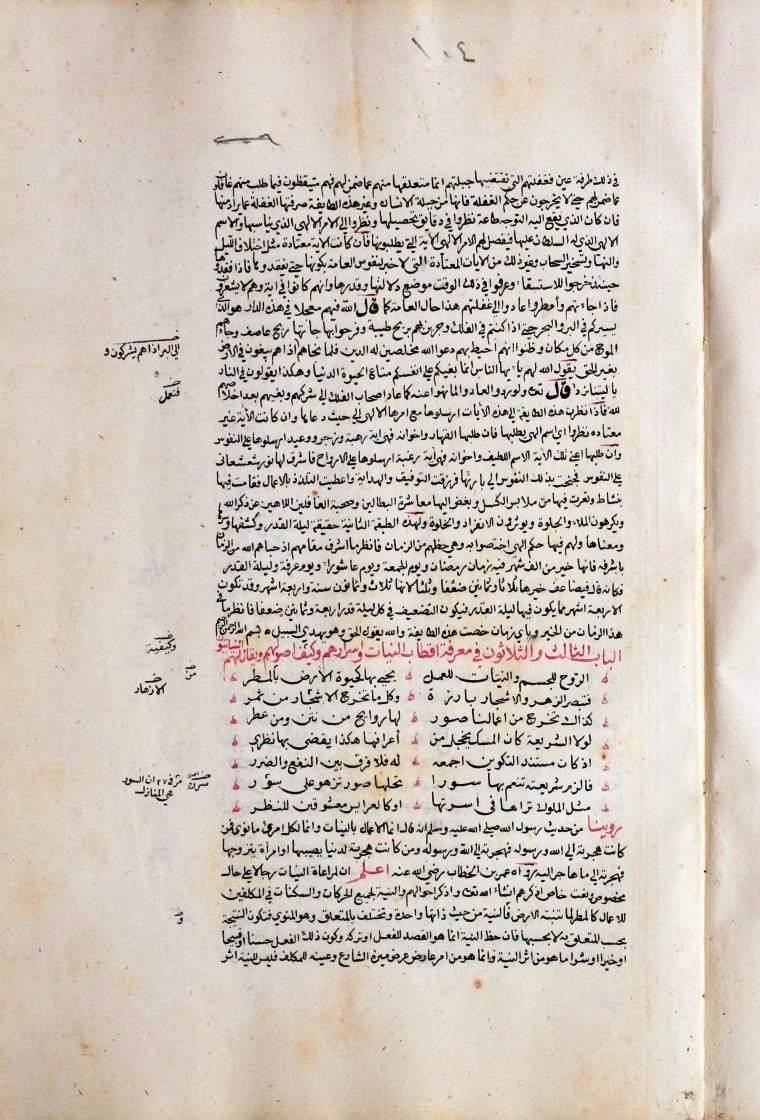 ١٠٤
في ذلك طرفة عين فغفلتهم التي تقتضيها جبلتهم انما متعلقها منهم عما ضمن لهم فهم متيقظون فيما طلب منهم غافلون
عما ضمن لهم حتى لا يخرجون عن حكم الغفلة فانها من جبلة الانسان وغير هذه الطايفة صرفتها الغفلة عما يراد منها
فان كان الذي يقع اليه التوجه طاعة نظروا في دقايق تحصيلها ونظروا الى الامر الالهي الذي يناسبها والاسم
الالهي الذي له السلطنة عليها فيفصل لهم الامر الالهي الآية التي يطلبونها فان كانت الآية معتادة مثل اختلاف الليل
والنهار وتسخير السحاب وغير ذلك من الآيات المعتادة التي لا خبر لنفوس العامة بكونها حتى يفقدوها فاذا فقدوها
حينئذ خرجوا للاستسقاء وعرفوا في ذلك الوقت موضع دلالتها وقدرها وانهم كانوا في اية وهم لا يشعرون
فاذا جاءتهم وامطروا عادوا الى غفلتهم هذا حال العامة كما قال الله فيهم معجلا في هذه الدار هو الذي
يسيركم في البر والبحر حتى اذا كنتم في الفلك وجرين بهم بريح طيبة وفرحوا بها جاءتها ريح عاصف وجاءهم
الموج من كل مكان وظنوا انهم احيط بهم دعوا الله مخلصين له الدين فلما نجاهم اذا هم يبغون في الارض
بغير الحق يقول الله لهم يا ايها الناس انما بغيكم على انفسكم متاع الحيوة الدنيا وهكذا يقولون في النار
يا ليتنا نرد قال تعالى ولو ردوا لعادوا لما نهوا عنه كما عاد اصحاب الفلك الى شركهم وبغيهم بعد اخلاصهم
لله فاذا نظرت هذه الطايفة الى هذه الآيات ارسلوها مع امرها الالهي الى حيث دعاها وان كانت الآية غير
معتادة نظروا اي اسم الهي يطلبها فان طلبها القهار واخوانه فهي اية رهبة وزجر ووعيد ارسلوها على النفوس
وان طلبها اعني تلك الآية الاسم اللطيف واخوانه فهي اية رغبة ارسلوها على الارواح فاشرق لها نور شعشعاني
على النفوس فجنحت بذلك النفوس الى بارئها فرزقت التوفيق والهداية واعطيت التلذذ بالاعمال فقامت فيها
بنشاط وتعرت فيها من ملابس الكسل وبغض اليها معاشرة البطالين وصحبة الغافلين اللاهين عن ذكر الله
ويكرهون الملاء والجلوة ويوثرون الانفراد والخلوة ولهذه الطبقة الثانية حقيقة ليلة القدر وكشفها وسرها
ومعناها ولهم فيها حكم الهي اختصوا به وهي حظهم من الزمان فانظر ما اشرف مقامهم اذ حباهم الله من الزمان
باشرفه فانها خير من الف شهر فيه زمان رمضان ويوم الجمعة ويوم عاشوراء ويوم عرفة وليلة القدر
فكانه قال فيضاعف خيرها ثلاثا وثمانين ضعفا وثلثا لانها ثلاث وثمانون سنة واربعة اشهر وقد تكون
الاربعة اشهر مما يكون فيها ليلة القدر فيكون التضعيف في كل ليلة قدر اربعة وثمانين ضعفا فانظر ما في
هذا الزمان من الخير وباي زمان خصت هذه الطايفة والله يقول الحق وهو يهدي السبيل ه بسم الله الرحمن الرحيم
الباب الثالث والثلاثون في معرفة اقطاب النيات واسرارهم وكيف اصولهم ويقال لهم النياتيون
الروح للجسم والنيات للعمل ه يحيى بها كحيوة الارض بالمطر
فتبصر الزهر والاشجار بارزة ه وكل ما تخرج الاشجار من ثمر
كذاك تخرج من اعمالنا صور ه لها روايح من نتن ومن عطر
لولا الشريعة كان المسك يخجل من ه اعرافها هكذا يقضى بها نظري
اذ كان مستند التكوين اجمعه ه له فلا فرق بين النفع والضرر
فالزم شريعته تنعم بها سورا ه تحلها صور تزهو على سرر
مثل الملوك تراها في اسرتها ه او كالعرايس معشوقين للنظر
روينا من حديث رسول الله صلى الله عليه وسلم انه قال انما الاعمال بالنيات وانما لكل امرئ ما نوى فمن
كانت هجرته الى الله ورسوله فهجرته الى الله ورسوله ومن كانت هجرته لدنيا يصيبها او امرأة يتزوجها
فهجرته الى ما هاجر اليه رواه عمر بن الخطاب رضي الله عنه اعلم ان لمراعاة النيات رجالا على حال
مخصوص ونعت خاص اذكرهم ان شاء الله تعالى واذكر احوالهم والنية لجميع الحركات والسكنات في المكلفين
للاعمال كالمطر لما تنبته الارض فالنية من حيث ذاتها واحدة وتختلف بالمتعلق وهو المنوي فتكون النتيجة
بحسب المتعلق به لا بحسبها فان حظ النية انما هو القصد للفعل او تركه وكون ذلك الفعل حسنا او قبيحا
او خيرا او شرا ما هو من اثر النية وانما هو من امر عارض عرض ميزه الشارع وعينه للمكلف فليس للنية اثر
الى البر اذا هم يشركون و
فنعمل
وكيفية
من
الازهار
ان السور
هي المنازل
و